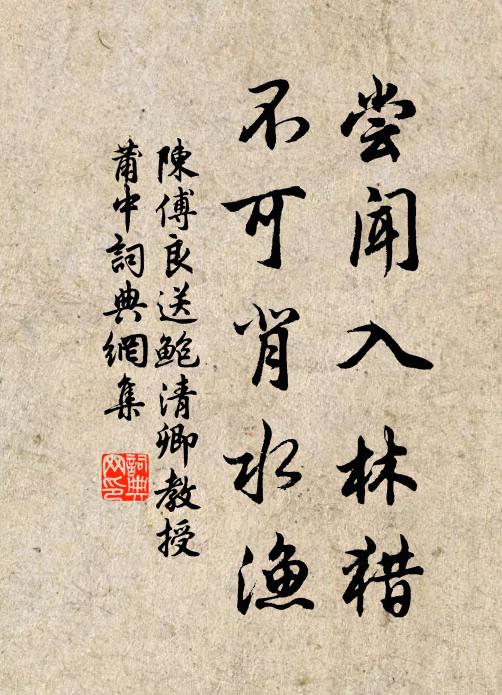 尝闻入林猎
不可背水渔
陳傅良送鲍清卿教授
莆中詞典網集
詞典
网印